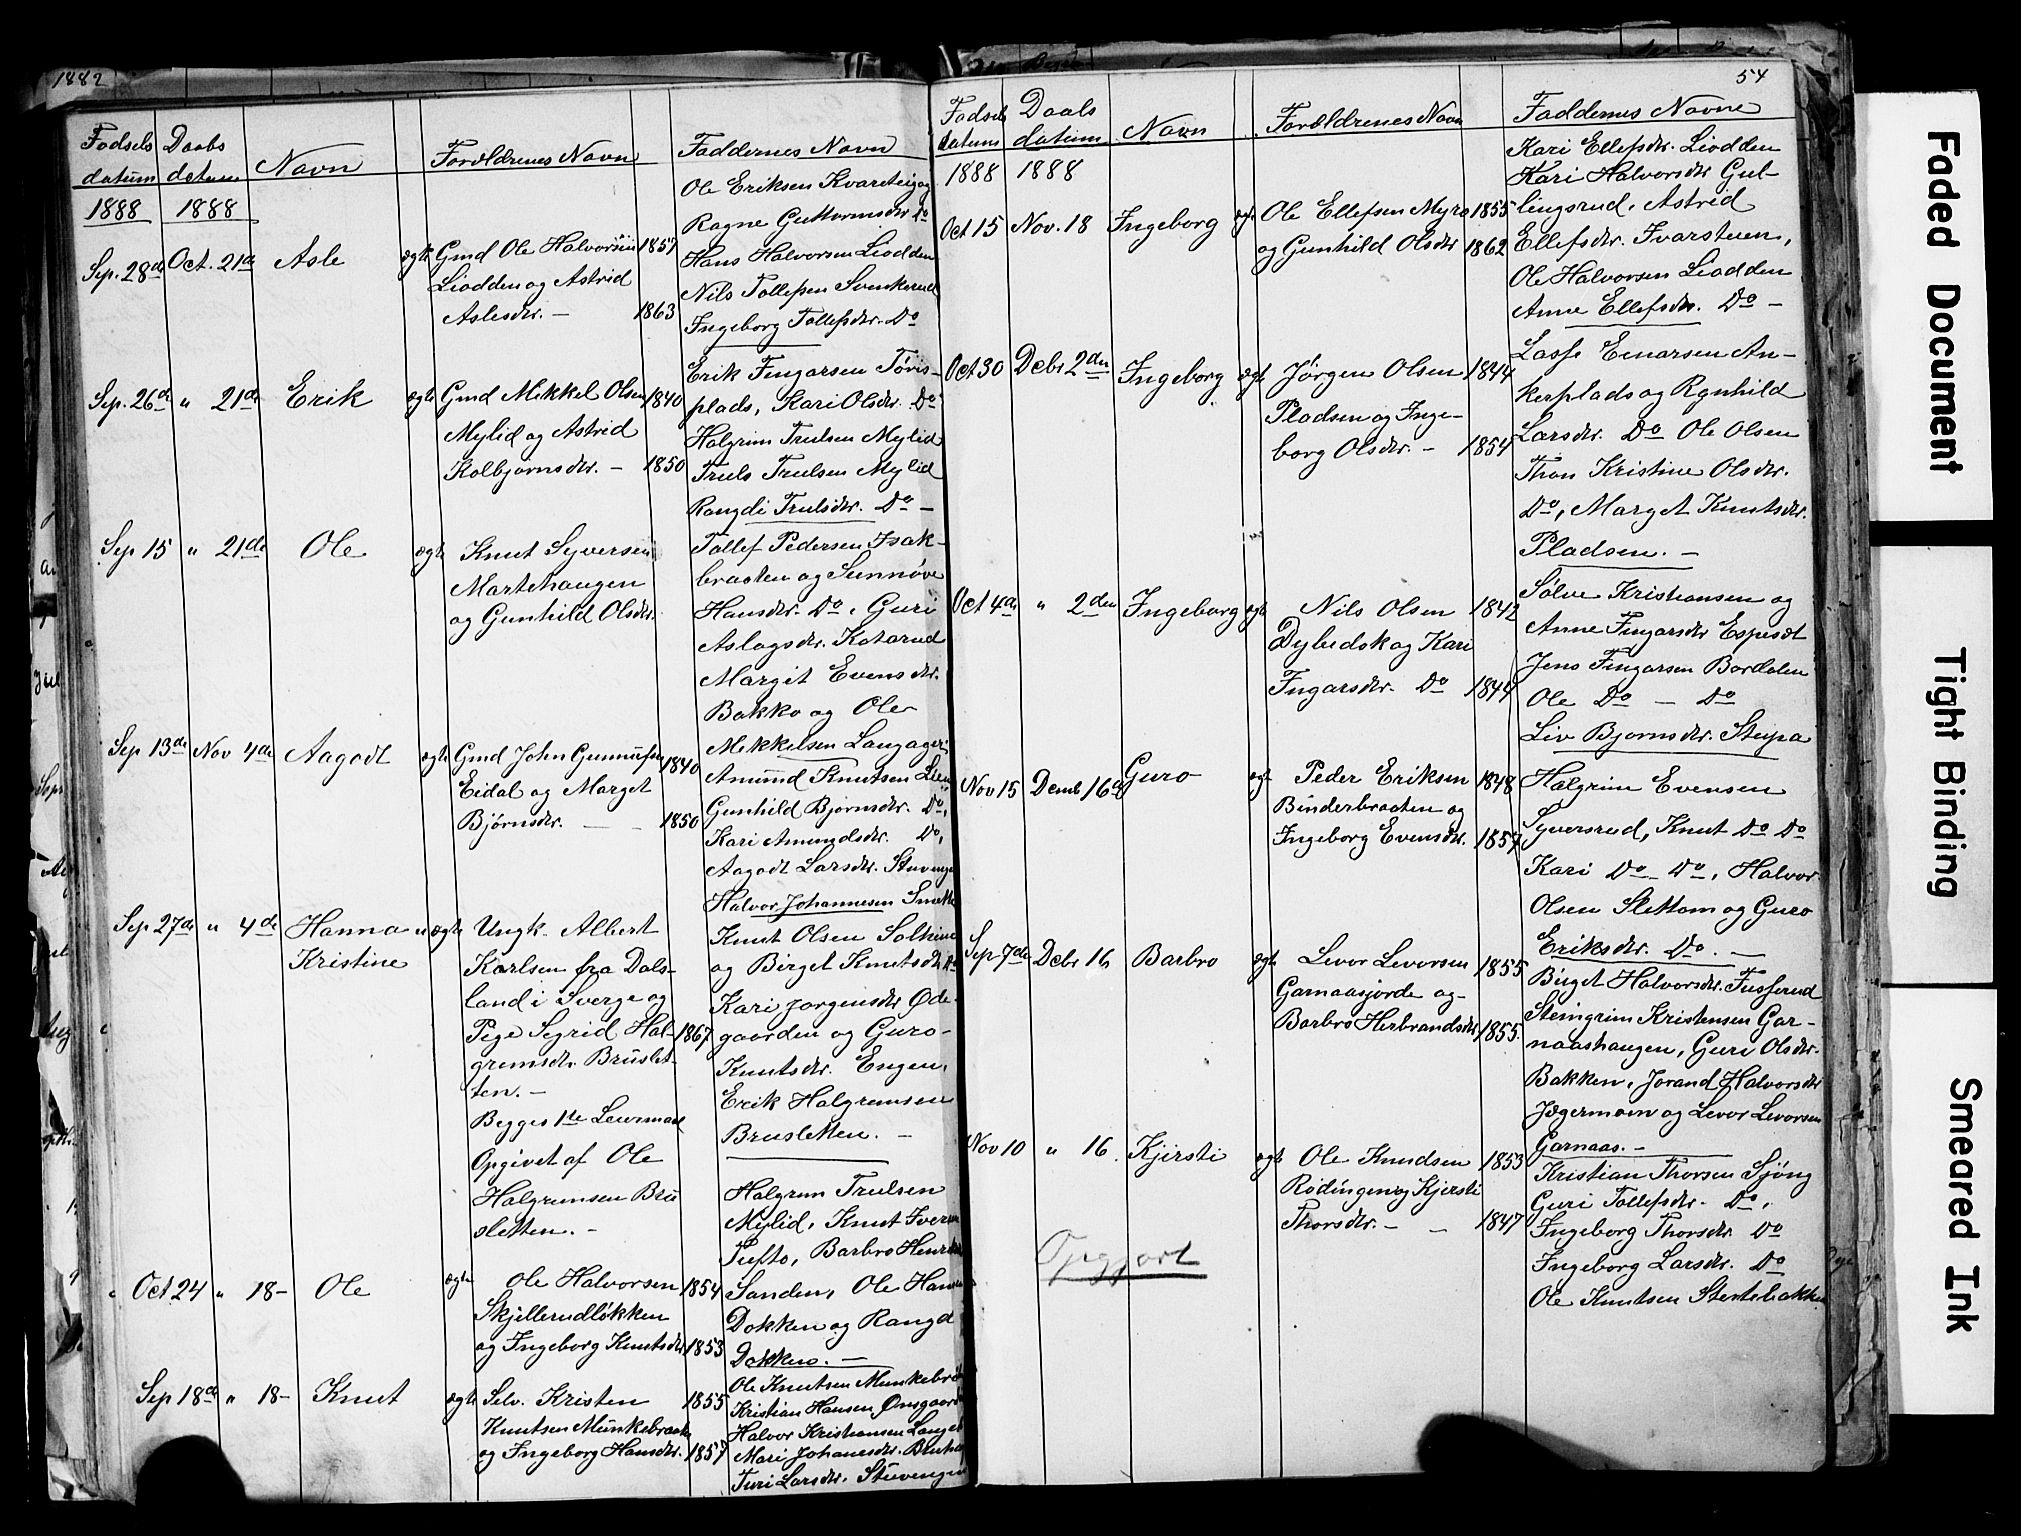 1882
Fodsels datum
Daabs datum
Navn
Forældrenes Navn
Faddernes Navn
1888
1888
Sep. 28de
Oct. 21de
Asle
ægte
Gmd Ole Halvorsen 1857
Liodden og Astrid
Aslesdtr. — 1863
Ole Eriksen Kvarteig og
Ragne Guttormsdtr Do
Hans Halvorsen Liodden
Nils Tollefsen Svenkerud
Ingeborg Tollefsdtr. Do
Sep. 26de
" 21de
Erik
ægte
Gmd Mikkel Olsen 1840
Mylid og Astrid
Kolbjørnsdtr. — 1850
Erik Fingarsen Tøris-
plads, Kari Olsdtr. Do
Halgrim Trulsen Mylid
Truls Trulsen Mylid
Rangdi Trulsdtr. Do —
Sep 15
" 21de
Ole
ægte
Knut Syversen
Martehaugen
og Gunhild Olsdtr.
Tollef Pedersen Isak-
braaten og Sunnøve
Hansdtr. Do, Guri
Aslagsdtr. Kolarud
Margit Evensdtr.
Bakko og Ole
Mikkelsen Langager
Sep 13de
Nov 4de
Aagodt
ægte
Gmd John Gunnufsen 1840
Eidal og Marget
Bjørnsdtr. — — 1850
Amund Knutsen Lien
Gunhild Bjørnsdtr. Do,
Kari Amundsdtr. Do,
Aagodt Larsdtr. Stuvenge
Halvor Johannesen Smette
Sep 27de
" 4de
Hanna
Kristine
uægte
Ungk. Albert
Karlsen fra Dals-
land i Sverge og
Pige Segrid Hal- 1867
gremsdtr. Bruslet-
ten. —
Begges 1te Leiermaal
Opgivet af Ole
Halgrimsen Bru
sletten. —
Knut Olsen Solheim
og Birget Knutsdtr Do
Kari Jorgensdtr Øde-
gaarden og Guro
Knutsdtr. Engen,
Erik Halgrimsen
Brusletten. —
Oct 24
" 18-
Ole
ægte
Ole Halvorsen 1854
Skjellerudløkken
og Ingeborg Knutsdtr 1853
Halgrim Trulsen
Mylid, Knut Iversen
Tufto, Barbro Henriks
Sanden, Ole Hansen
Dokken og Rangd
Dokken. —
Sep 18de
" 18-
Knut
ægte
Selv. Kristen 1855
Knutsen Munkebraaten
og Ingeborg Hansdtr. 1857
Ole Knutsen Munkebr
Kristian Hansen Ømgaard
Halvor Kristiansen Langet
Mari Johanesdtr.
Turi Larsdtr. Stuvengen
54
Fodsels datum
Daabs datum
Navn
Forældrenes Navn
Faddernes Navne
1888
1888
Oct 15
Nov. 18
Ingeborg
ægte
Ole Ellefsen Myro 1855
og Gunhild Olsdtr 1862
Kari Ellefsdtr. Liodden
Kari Halvorsdtr Gul-
lingsrud, Astrid
Ellefsdtr. Ivarsteen,
Ole Halvorsen Liodden
Anne Ellefsdtr. Do —
Oct 30
Debr 2den
Ingeborg
ægte
Jørgen Olsen 1844
Pladsen og Inge-
borg Olsdtr. — 1854
Lasse Einarsen An-
kerplads og Rgnhild
Larsdtr. Do Ole Olsen
Thon Kristine Olsdtr.
Do, Marget Knutsdtr.
Pladsen. —
Oct 4de
" 2den
Ingeborg
ægte
Nils Olsen 1842
Dybedsk og Kari
Ingarsdtr. Do 1844
Sølve Kristiansen og
Anne Fingarsdtr Espeset
Jens Fingarsen Bordalen
Ole Do — Do
Liv Bjornsdtr. Stupa
Nov 15
Demb 16de
Guro
ægte
Peder Eriksen 1848
Binderbraaten og
Ingeborg Evensdtr. 1857
Halgrim Evensen
Syversrud, Knut Do Do
Kari Do — Do, Halvor
Olsen Slettom og Guro
Eriksdtr. Do. —
Sep 7de
Debr 16
Barbro
ægte
Levor Levorsen 1855
Garnaasjorde og
Barbro Herbrandsdtr 1855.
Birget Halvorsdtr. Tusserud
Steingrim Kristensen Gar-
naashaugen, Guri Olsdtr.
Bakken, Jorand Halvorsdtr
Jægermoen og Levor Levorsen
Garnaas. —
Nov 10
" 16.
Kjersti
ægte
Ole Knudsen 1853
Rodningen og Kjersti
Thorsdtr. — — 1847
Kristian Thorsen Sjøng
Guri Tollefsdtr. Do,
Ingeborg Thorsdtr. Do
Ingeborg Larsdtr. Do
Ole Knutsen Stentebakken
Opgjort
Faded Document
Tight Binding
Smeared Ink